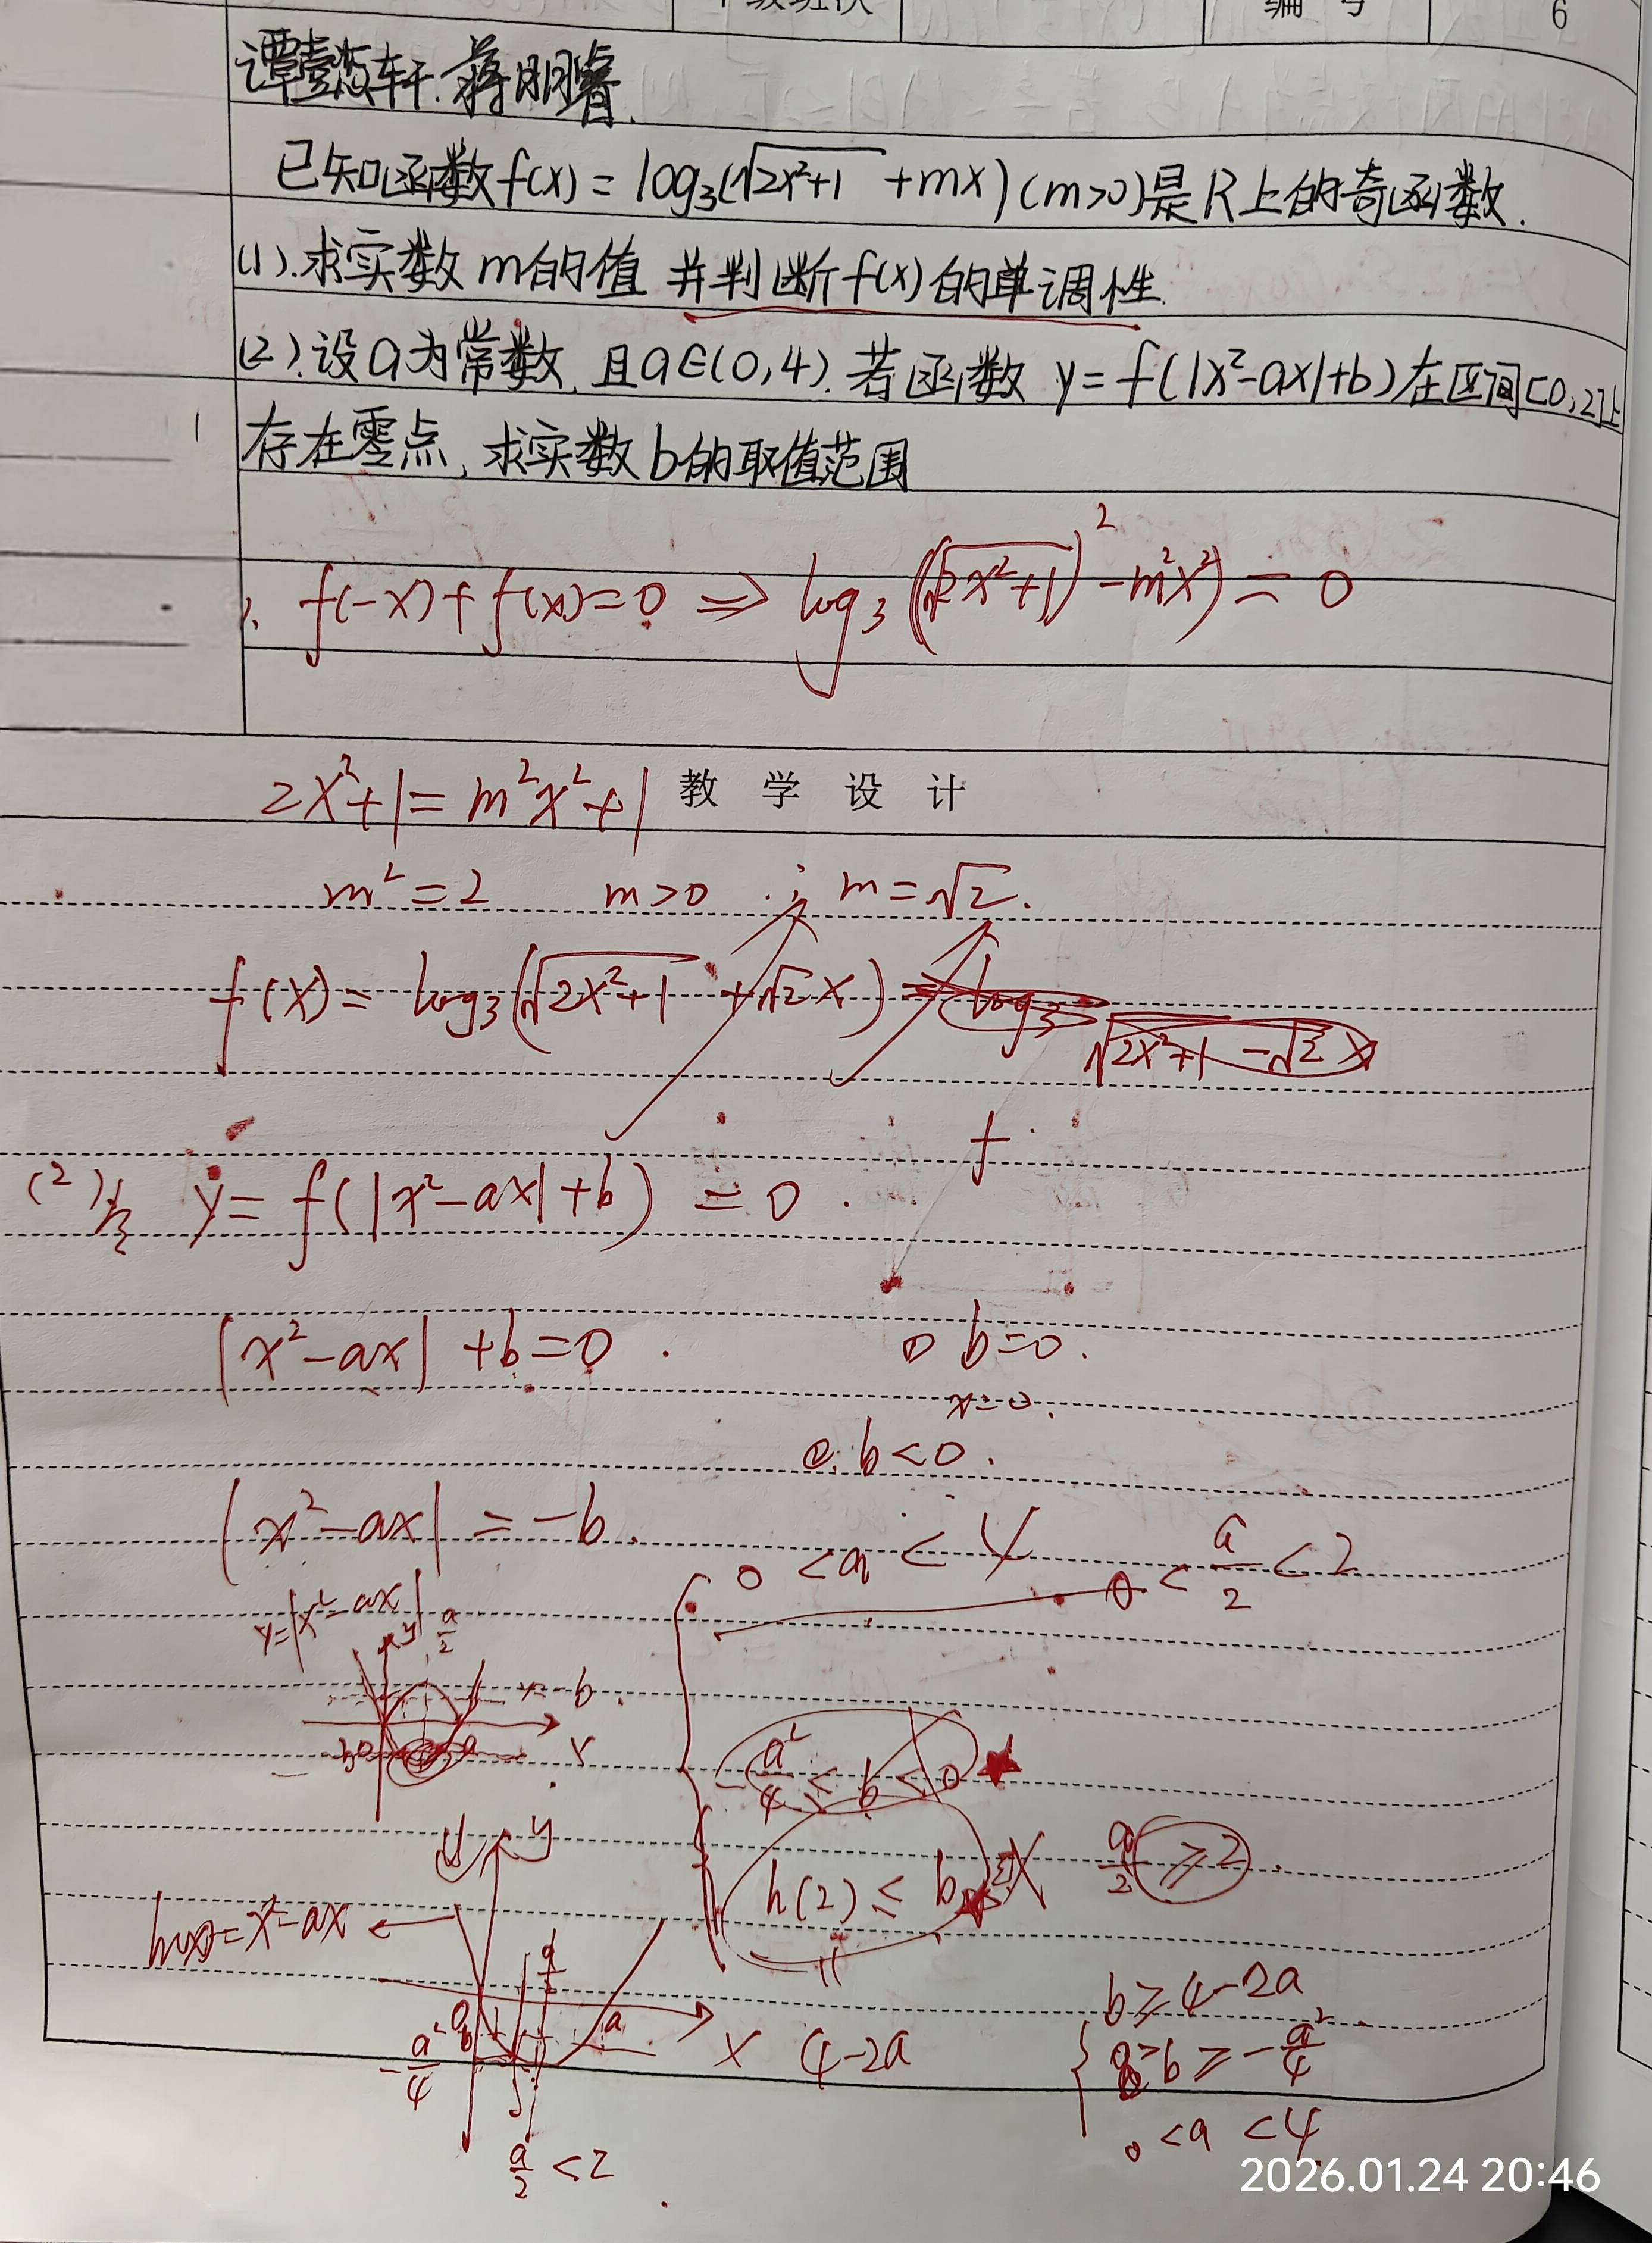 编 号 6
谭懿轩.蒋明睿.
已知函数f(x)=log₃(√(2x²+1)+mx)(m>0)是R上的奇函数.
(1).求实数m的值 并判断f(x)的单调性.
(2).设a为常数,且a∈(0,4).若函数 y=f(|x²-ax|+b)在区间[0,2]上
存在零点,求实数b的取值范围
f(-x)+f(x)=0 ⇒ log₃((√(2x²+1))²-m²x²)=0
2x²+1=m²x²+1
教 学 设 计
m²=2 m>0 ∴ m=√2.
f(x)=log₃(√(2x²+1)+√2x)=log₃ √(2x²+1)-√2x
f
(2) y=f(|x²-ax|+b)=0.
|x²-ax|+b=0. ① b=0.
x=0.
②. b<0.
|x²-ax|=-b.
0<a<4 0<a/2<2
y=|x²-ax| y a/2
y=-b.
x
-a²/4≤b<0
y
h(2)≤b a/2≥2.
h(x)=x²-ax
b≥4-2a
-a²/4 a x 4-2a
0>b≥-a²/4.
0<a<4
a/2<2
2026.01.24 20:46